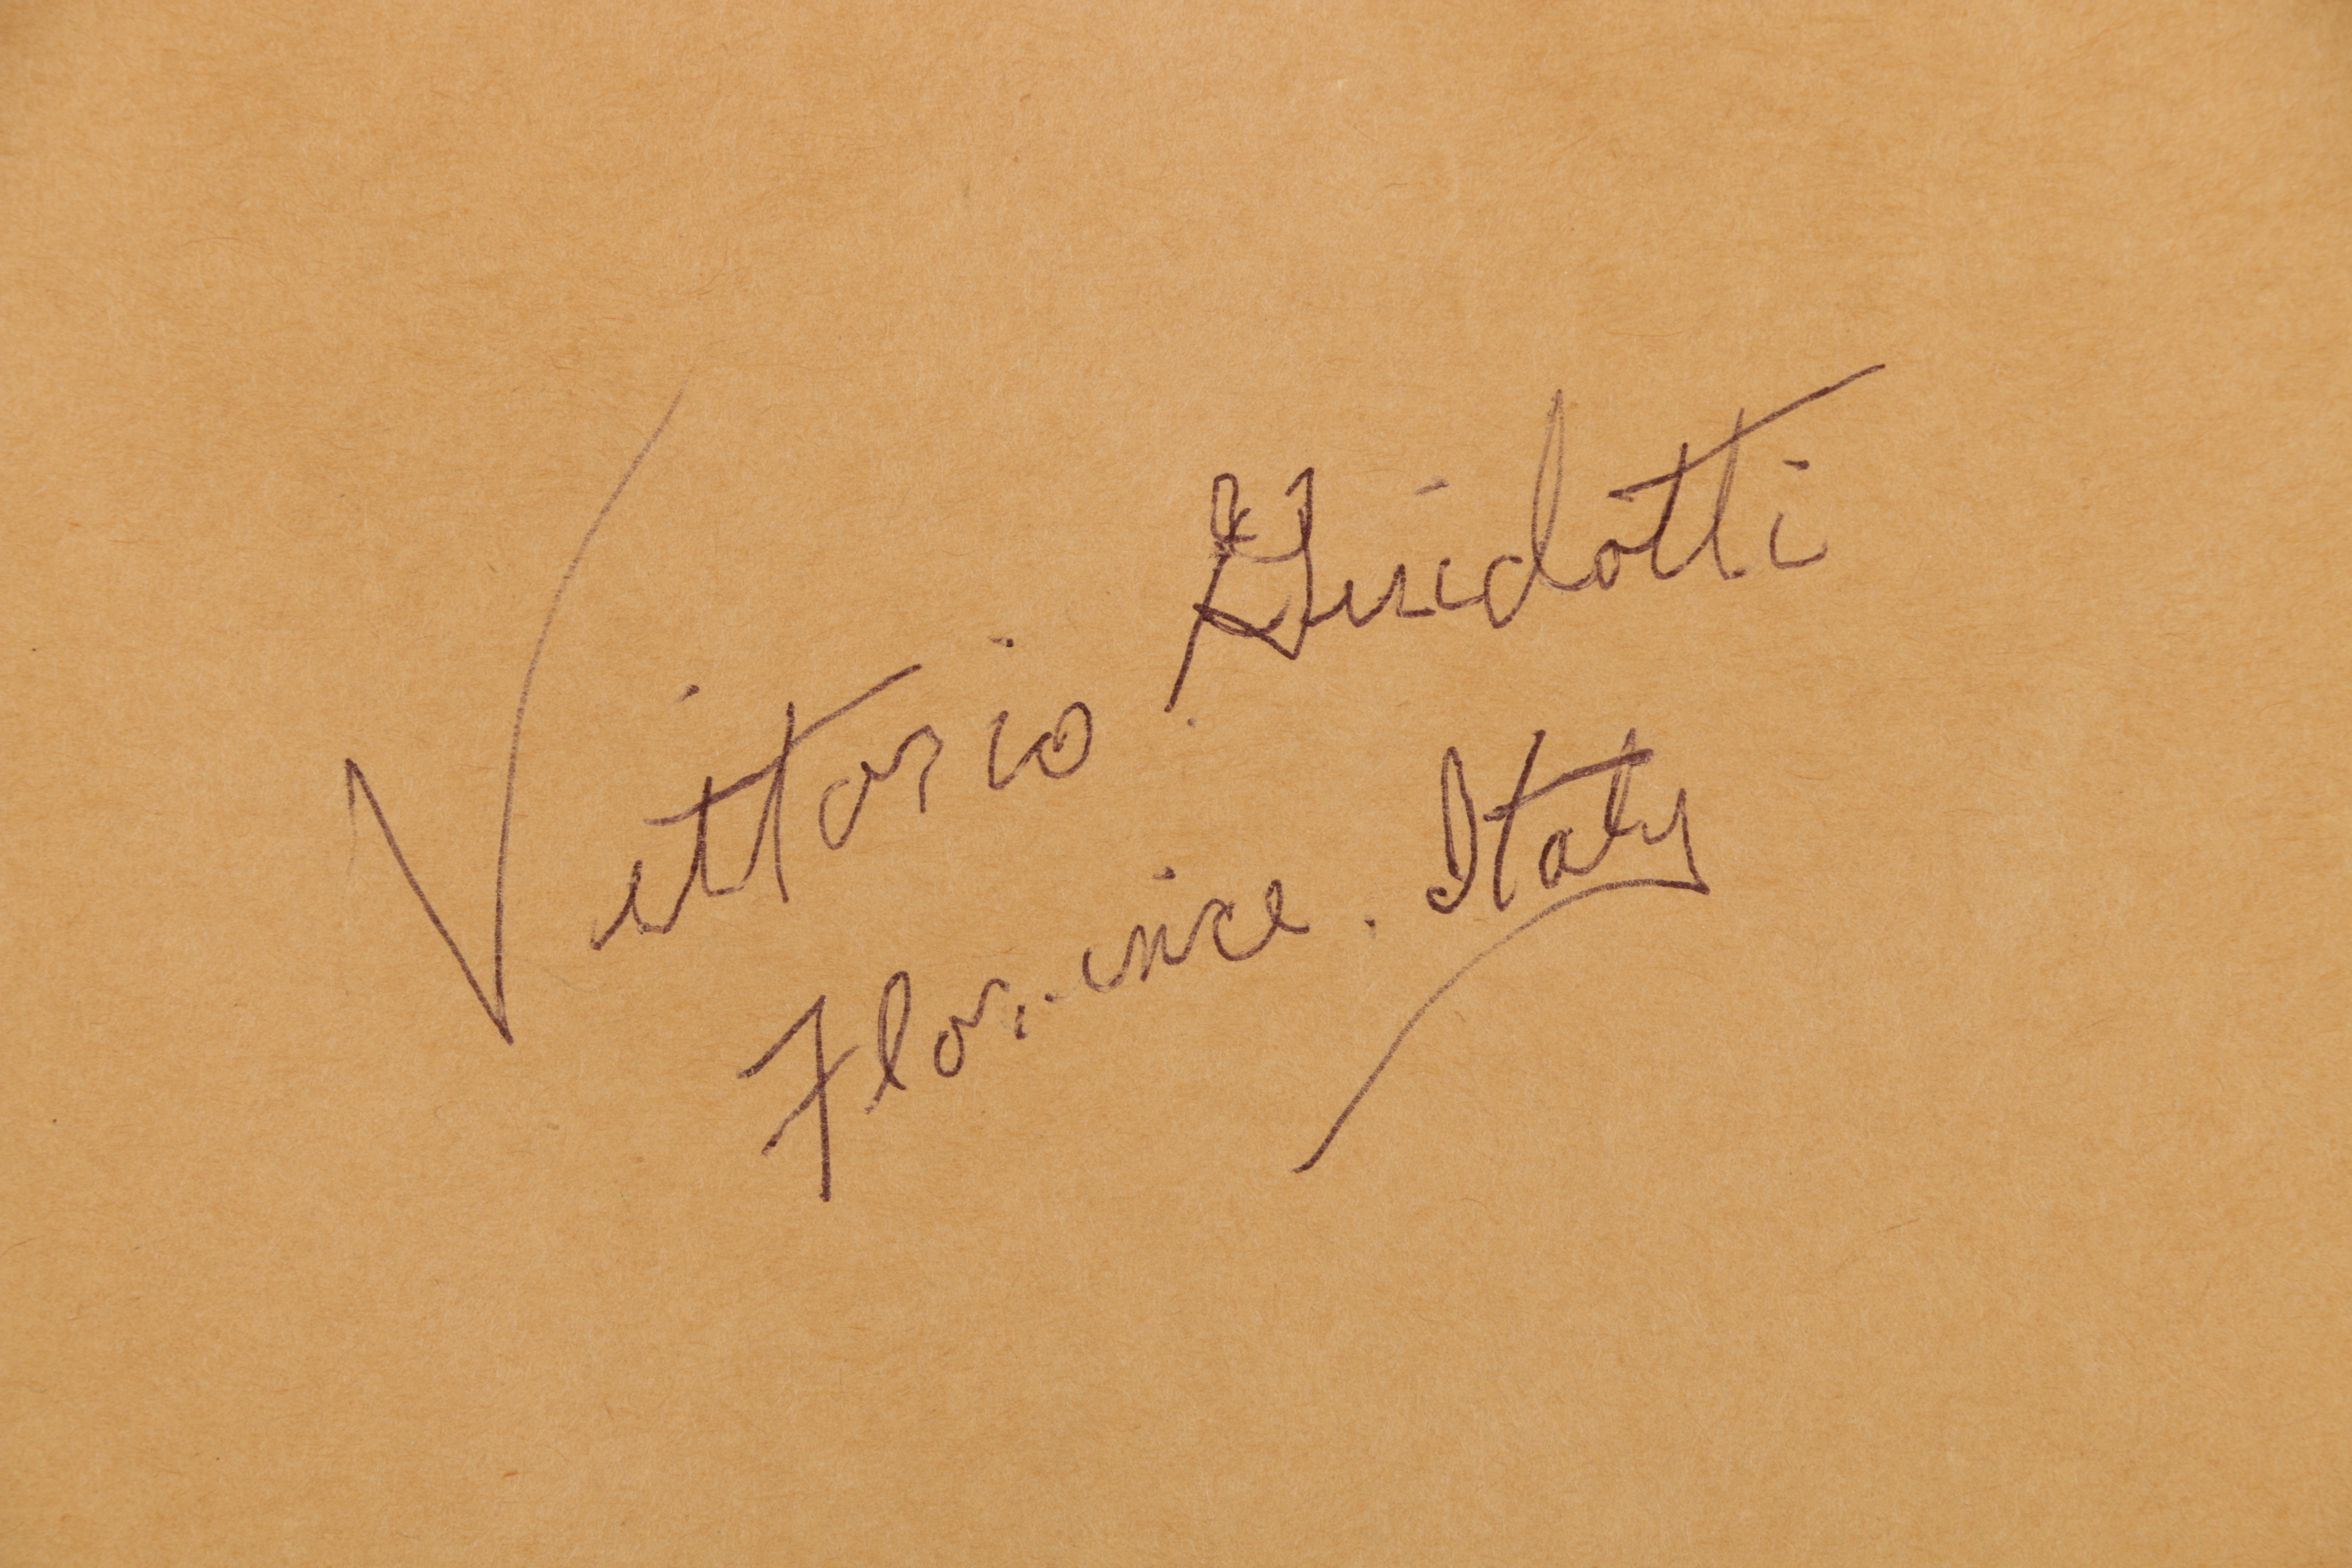 Vittorio Guidotti
Florence. Italy